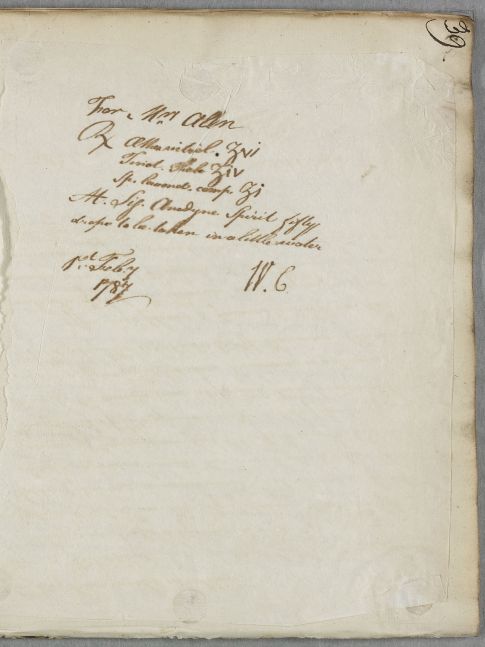 39
For Mrs Alin
℞ Æther vitriol. ʒvi
Tinct. Theb ʒiv
Sp. Lavend. comp. ʒi
M. Sig. Anodyne Spirit fifty
drops to be taken in a little water
1st Feby
1787
W. C.